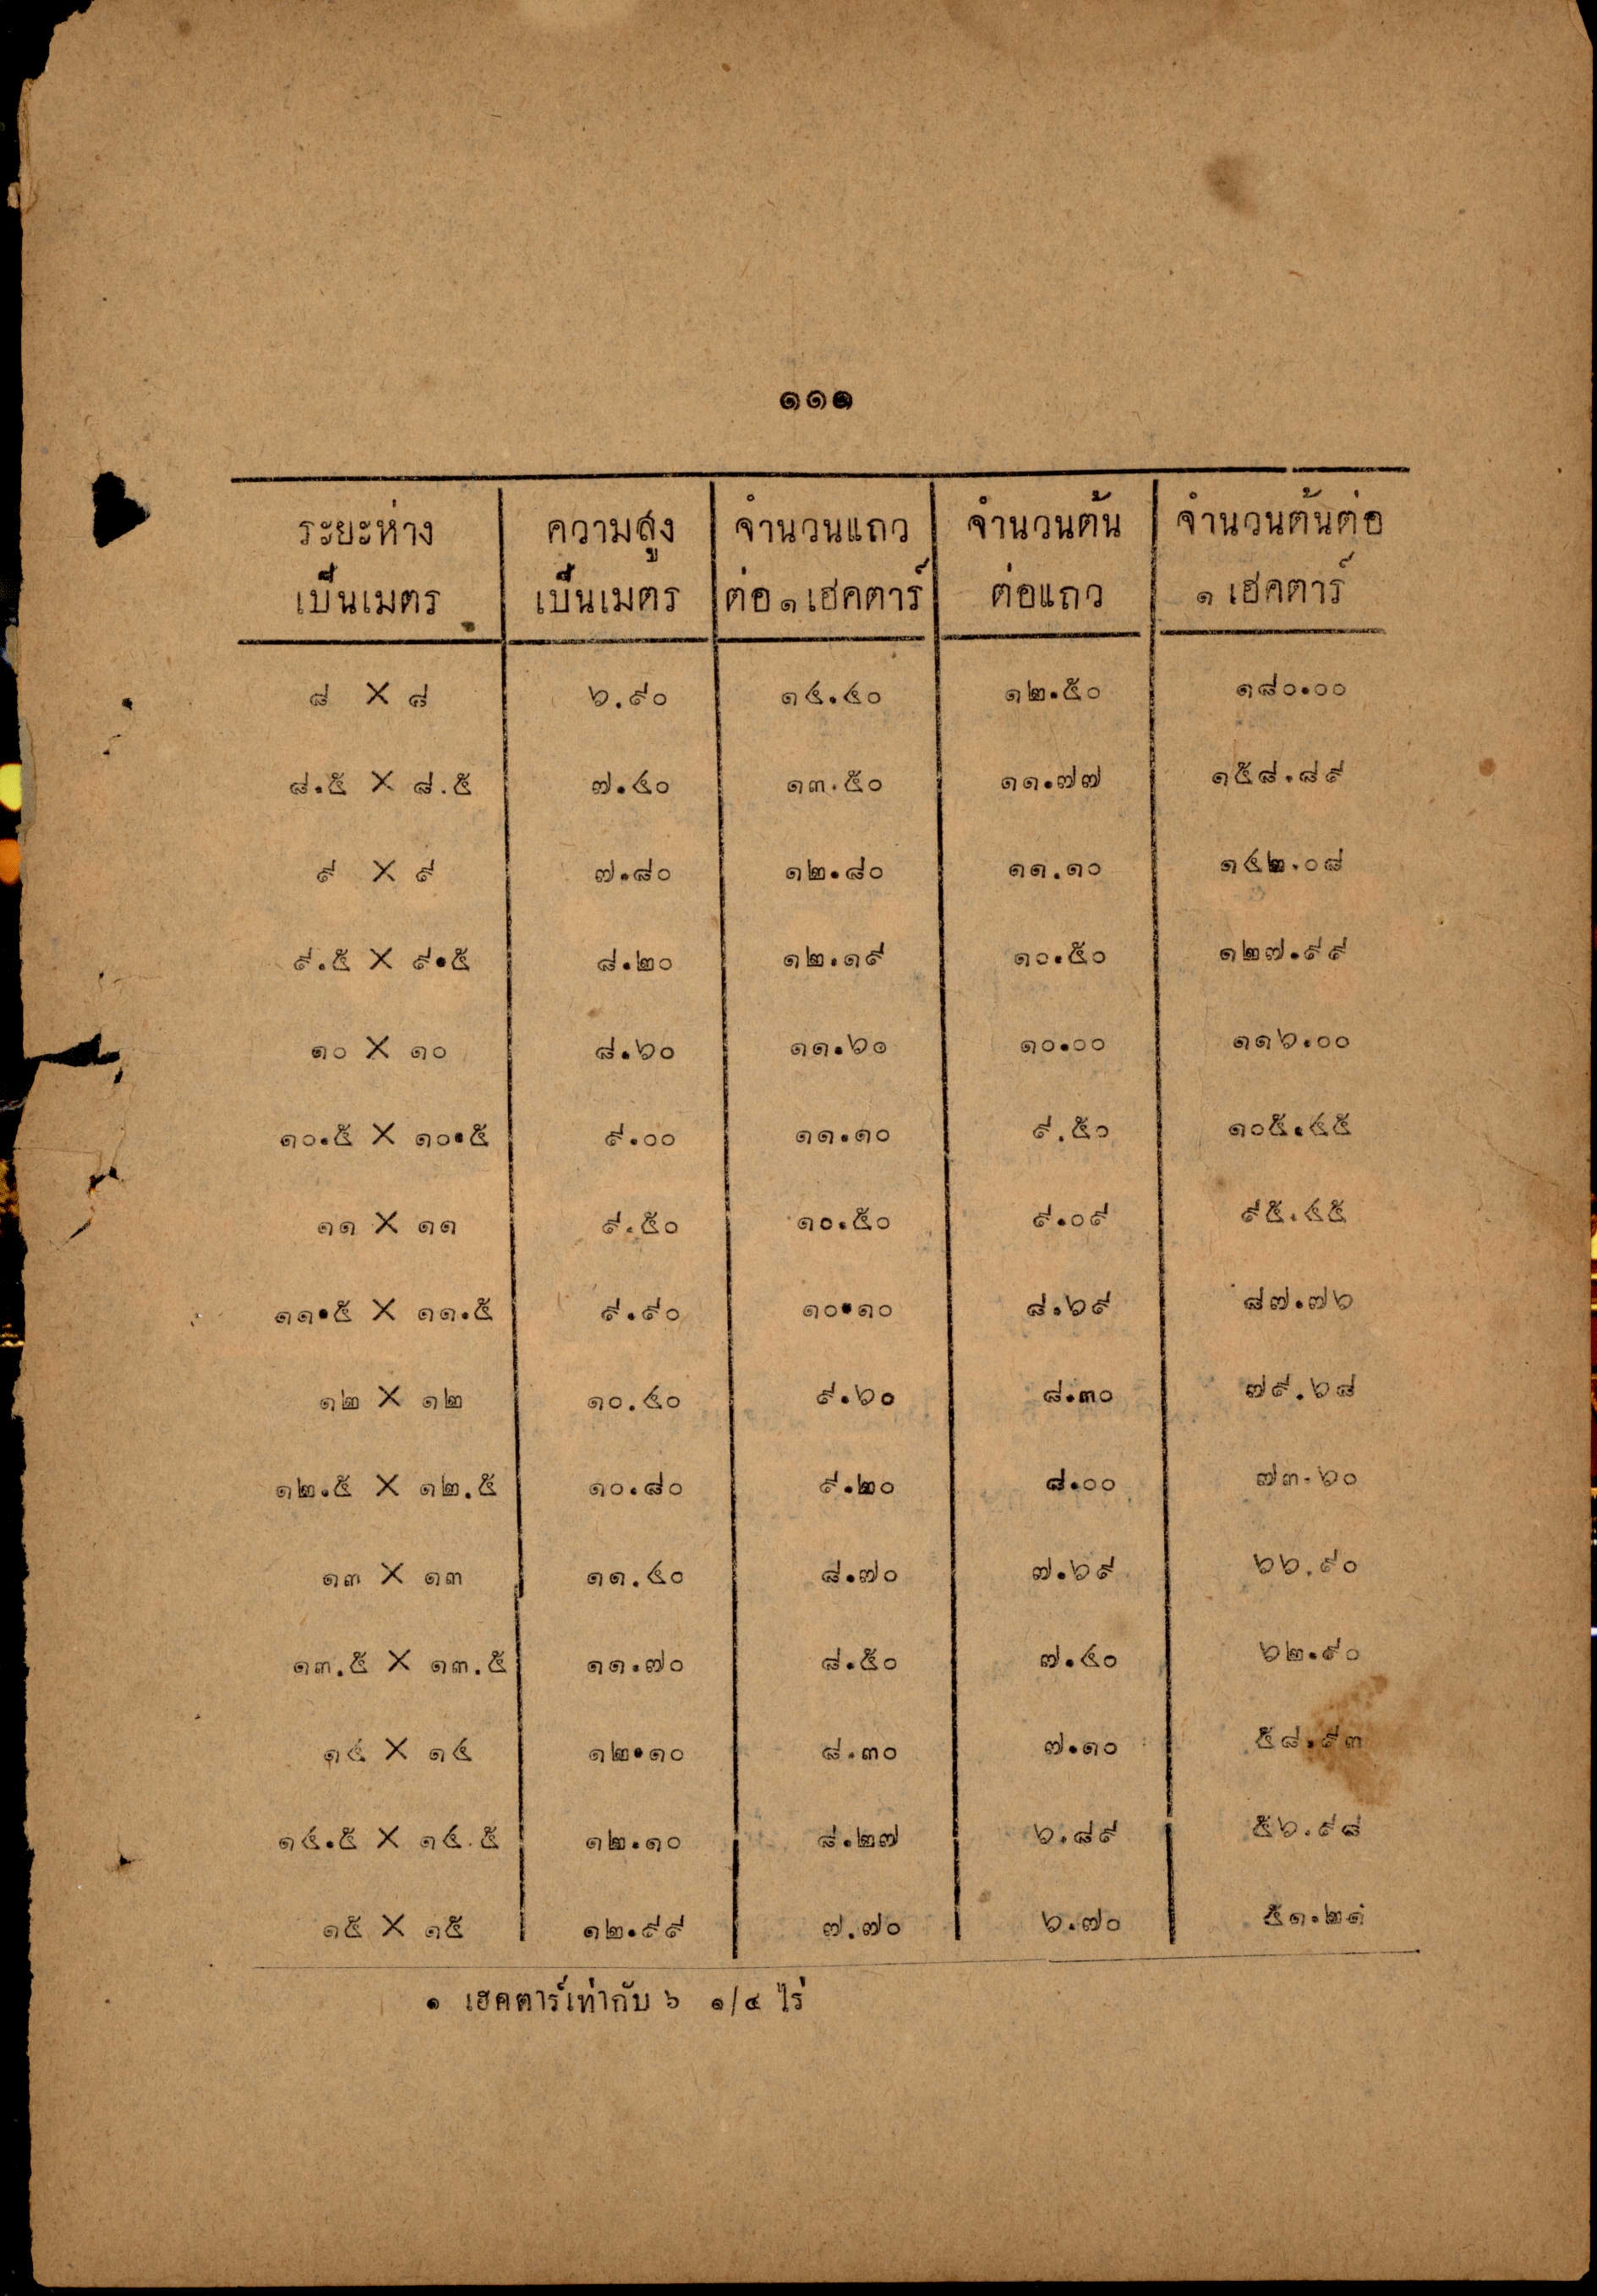 ๑๑๑
ระยะห่าง ความสูง จำนวนแถว จำนวนต้น จำนวนต้นต่อ
เป็นเมตร เป็นเมตร ต่อ ๑ เฮคตาร์ ต่อแถว ๑ เฮคตาร์
๘ X ๘ ๖.๙๐ ๑๔.๔๐ ๑๒.๕๐ ๑๘๐.๐๐
๘.๕ X ๘.๕ ๗.๔๐ ๑๓.๕๐ ๑๑.๗๗ ๑๕๘.๘๙
๙ X ๙ ๗.๘๐ ๑๒.๘๐ ๑๑.๑๐ ๑๔๒.๐๘
๙.๕ X ๙.๕ ๘.๒๐ ๑๒.๑๙ ๑๐.๕๐ ๑๒๗.๙๙
๑๐ X ๑๐ ๘.๖๐ ๑๑.๖๐ ๑๐.๐๐ ๑๑๖.๐๐
๑๐.๕ X ๑๐.๕ ๙.๐๐ ๑๑.๑๐ ๙.๕๐ ๑๐๕.๔๕
๑๑ X ๑๑ ๙.๕๐ ๑๐.๕๐ ๙.๐๙ ๙๕.๔๕
๑๑.๕ X ๑๑.๕ ๙.๙๐ ๑๐.๑๐ ๘.๖๙ ๘๗.๗๖
๑๒ X ๑๒ ๑๐.๔๐ ๙.๖๐ ๘.๓๐ ๗๙.๖๘
๑๒.๕ X ๑๒.๕ ๑๐.๘๐ ๙.๒๐ ๘.๐๐ ๗๓.๖๐
๑๓ X ๑๓ ๑๑.๔๐ ๘.๗๐ ๗.๖๙ ๖๖.๙๐
๑๓.๕ X ๑๓.๕ ๑๑.๗๐ ๘.๕๐ ๗.๔๐ ๖๒.๙๐
๑๔ X ๑๔ ๑๒.๑๐ ๘.๓๐ ๗.๑๐ ๕๘.๙๓
๑๔.๕ X ๑๔.๕ ๑๒.๑๐ ๘.๒๗ ๖.๘๙ ๕๖.๙๘
๑๕ X ๑๕ ๑๒.๙๙ ๗.๗๐ ๖.๗๐ ๕๑.๒๑
๑ เฮคตาร์เท่ากับ ๖ ๑/๔ ไร่